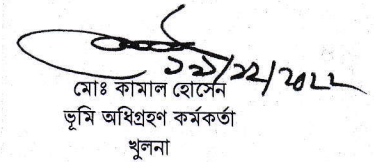 ২৯/১২/২০২২
মোঃ কামাল হোসেন
ভূমি অধিগ্রহণ কর্মকর্তা
খুলনা